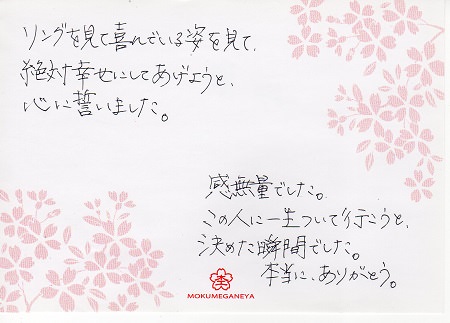 リングを見て喜んでいる姿を見て、
絶対幸せにしてあげようと、
心に誓いました。
感無量でした。
この人に一生ついて行こうと、
決めた瞬間でした。
本当に、ありがとう。
MOKUMEGANEYA